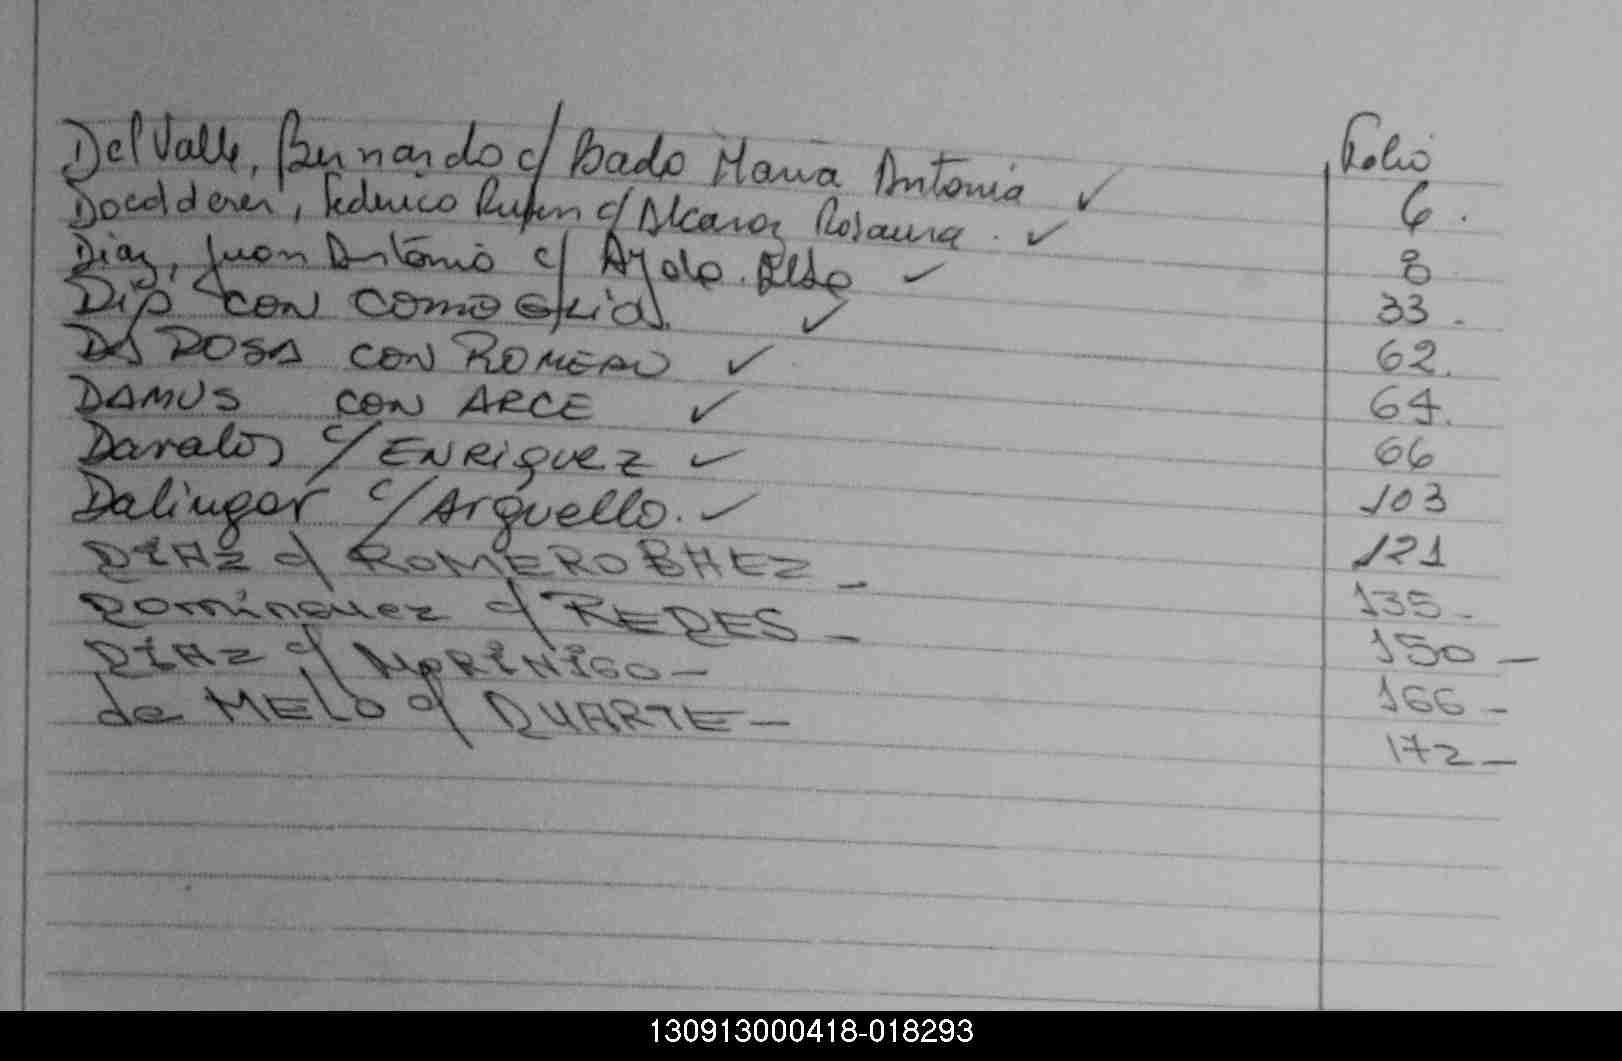 Folio
Del Valle, Bernardo c/ Bado Maria Antonia ✓ 6.
Docolderer, Federico Ruben c/ Alcaraz Rosaura. ✓ 8
Diaz, Juan Antonio c/ Ayala. Elsa ✓ 33.
Dip con Como ✓ 62.
DA ROSA CON ROMERO ✓ 64.
DAMUS CON ARCE ✓ 66
Davalos c/ ENRIQUEZ ✓ 103
Dalingar c/ Arguello. ✓ 121
DIAZ c/ ROMERO BAEZ - 135-
Dominguez c/ REDES - 150-
DIAZ c/ MORINIGO - 166-
de MELO c/ DUARTE - 172-
130913000418-018293